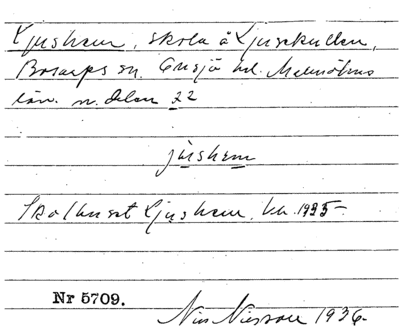 Ljushem, skola å Ljusekullen,
Bosarps sn. Onsjö hd. Malmöhus
län. n. delen 22
jūshem
Skolhuset Ljushem, kh. 1935-
Nr 5709.
Nils Nilsson 1936-